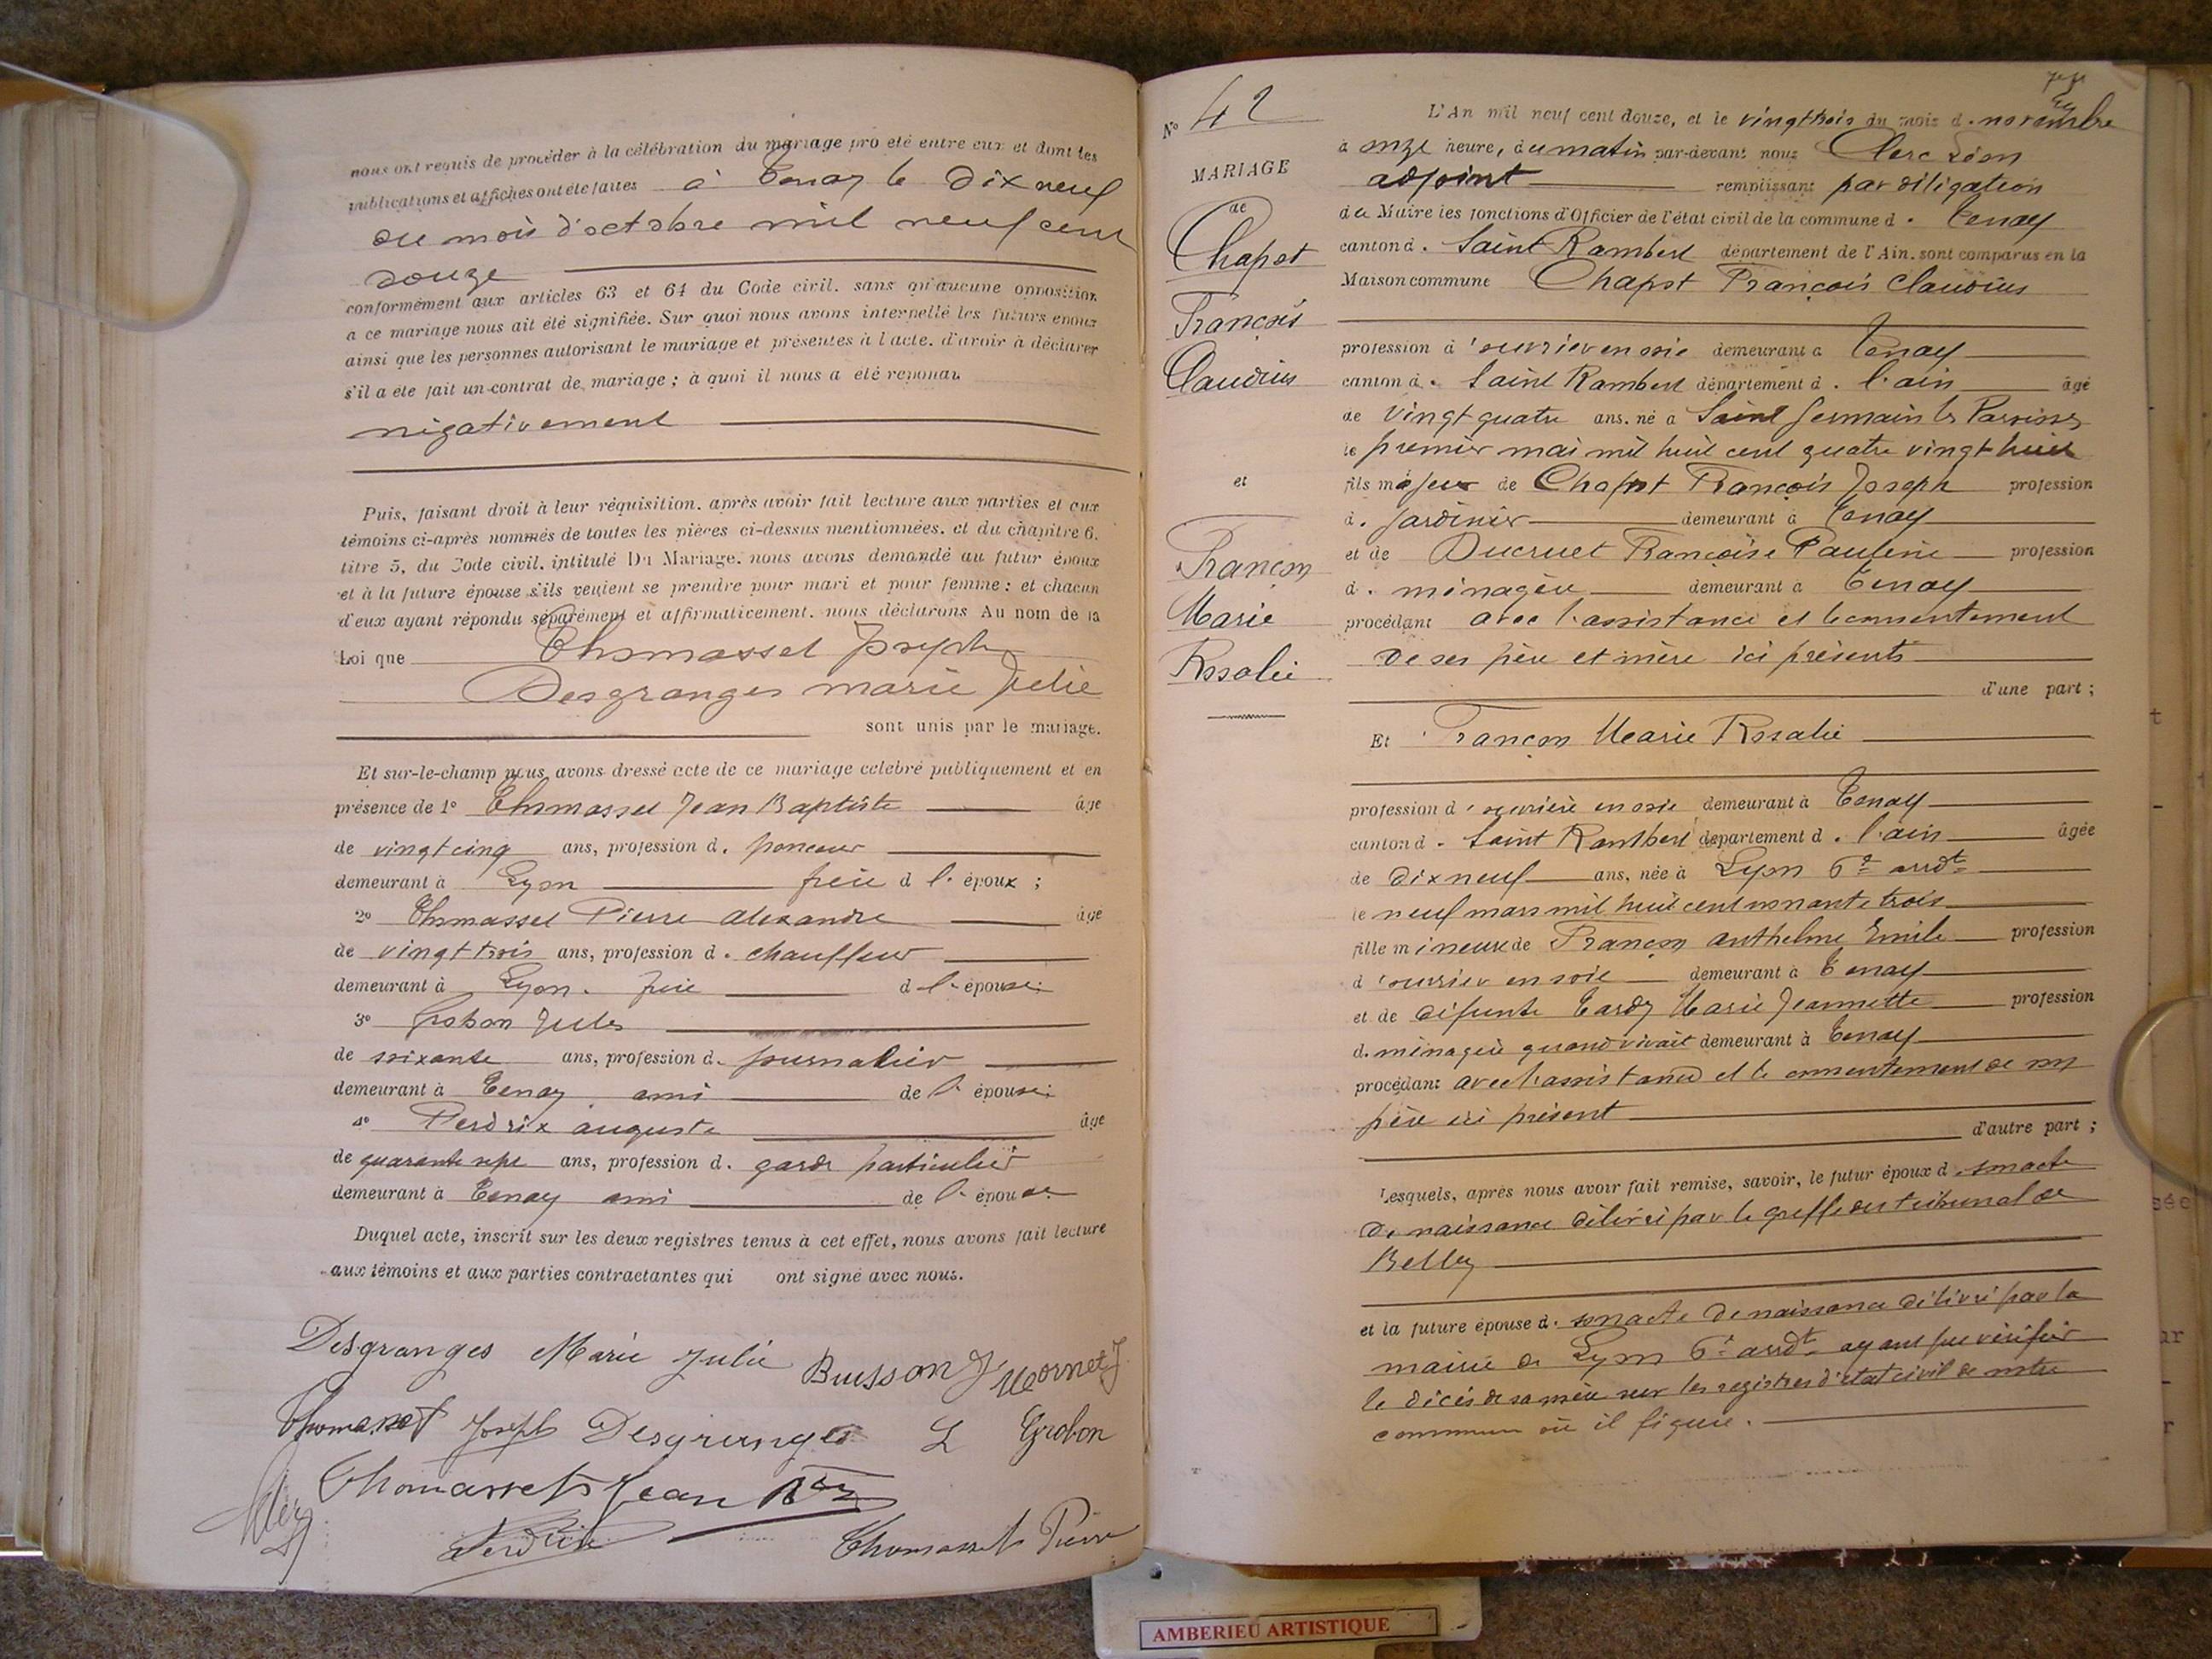 nous ont requis de procéder à la célébration du mariage pro eté entre eux et dont les
publications et affiches ont été faites à Tenay le Dix neuf
du mois d'octobre mil neuf cent
douze
conformément aux articles 63 et 64 du Code civil, sans qu'aucune opposition
a ce mariage nous ait été signifiée. Sur quoi nous avons interpellé les futurs epoux
ainsi que les personnes autorisant le mariage et présentes à l'acte, d'avoir à déclarer
s'il a été fait un contrat de mariage ; à quoi il nous a été repondu
négativement
Puis, faisant droit à leur réquisition, après avoir fait lecture aux parties et aux
témoins ci-après nommés de toutes les pièces ci-dessus mentionnées, et du chapitre 6,
titre 5, du Code civil, intitulé Du Mariage, nous avons demandé au futur époux
et à la future épouse s'ils veulent se prendre pour mari et pour femme ; et chacun
d'eux ayant répondu séparément et affirmativement, nous déclarons Au nom de la
Loi que Thomasset Joseph
Desgranges marie Julie
sont unis par le mariage.
Et sur-le-champ nous avons dressé acte de ce mariage célébré publiquement et en
présence de 1° Thomasset Jean Baptiste âgé
de vingt cinq ans, profession d. ponceur
demeurant à Lyon frère d l. époux ;
2° Thomasset Pierre alexandre âgé
de vingt trois ans, profession d. chauffeur
demeurant à Lyon. frère d l. épouse;
3° Grobon Jules
de soixante ans, profession d. journalier
demeurant à Tenay ami de l. épouse;
4° Perdrix auguste âgé
de quarante sept ans, profession d. garde particulier
demeurant à Tenay ami de l. épouse
Duquel acte, inscrit sur les deux registres tenus à cet effet, nous avons fait lecture
aux témoins et aux parties contractantes qui ont signé avec nous.
Desgranges Marie Julie Buisson J Mornet J
Thomasset Joseph Desgranges L Grobon
Thomasset Jean Bte
Perdrix Thomasset Pierre
N° 42
MARIAGE
de
Chapot
François
Claudius
et
Françon
Marie
Rosalie
L'An mil neuf cent douze, et le vingt trois du mois d. novembre
à onze heure, du matin par-devant nous Clerc Léon
adjoint remplissant par déligation
du Maire les fonctions d'Officier de l'état civil de la commune d. Tenay
canton d. Saint Rambert département de l'Ain, sont comparus en la
Maison commune Chapot François Claudius
profession d'ouvrier en soie demeurant à Tenay
canton d. Saint Rambert département d. l'ain âgé
de vingt quatre ans, né à Saint Germain les Paroisses
le premier mai mil huit cent quatre vingt huit
fils majeur de Chapot François Joseph profession
d. jardinier demeurant à Tenay
et de Ducruet Françoise Pauline profession
d. ménagère demeurant à Tenay
procédant avec l'assistance et le consentement
de ses père et mère ici présents
d'une part ;
Et Françon Marie Rosalie
profession d'ouvrière en soie demeurant à Tenay
canton d. Saint Rambert département d. l'ain âgée
de dix neuf ans, née à Lyon 6e arrdt
le neuf mars mil huit cent nonante trois
fille mineure de Françon anthelme Emile profession
d'ouvrier en soie demeurant à Tenay
et de défunte Tardy Marie Jeannette profession
d. ménagère quand vivait demeurant à Tenay
procédant avec l'assistance et le consentement de son
père ici présent
d'autre part ;
Lesquels, après nous avoir fait remise, savoir, le futur époux d. son acte
de naissance délivré par le greffe du tribunal de
Belley
et la future épouse d. son acte de naissance délivré par la
mairie de Lyon 6e arrdt ayant pu vérifier
le décès de sa mère sur les registres d'état civil de notre
commune où il figure.
AMBERIEU ARTISTIQUE